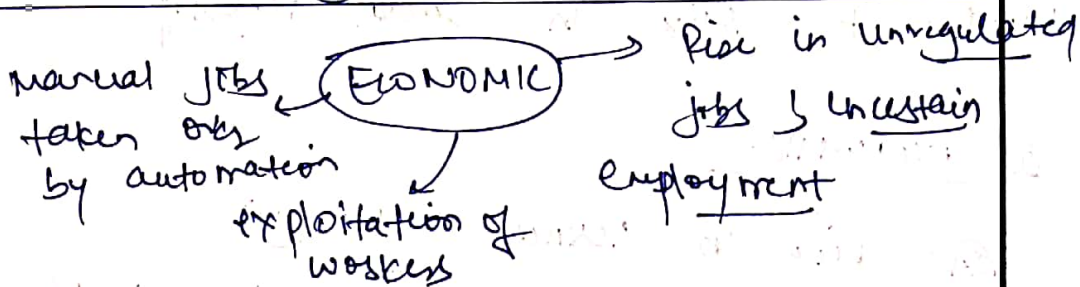 ECONOMIC
Manual jobs
taken over
by automation
exploitation of
workers
Rise in unregulated
jobs & uncertain
employment